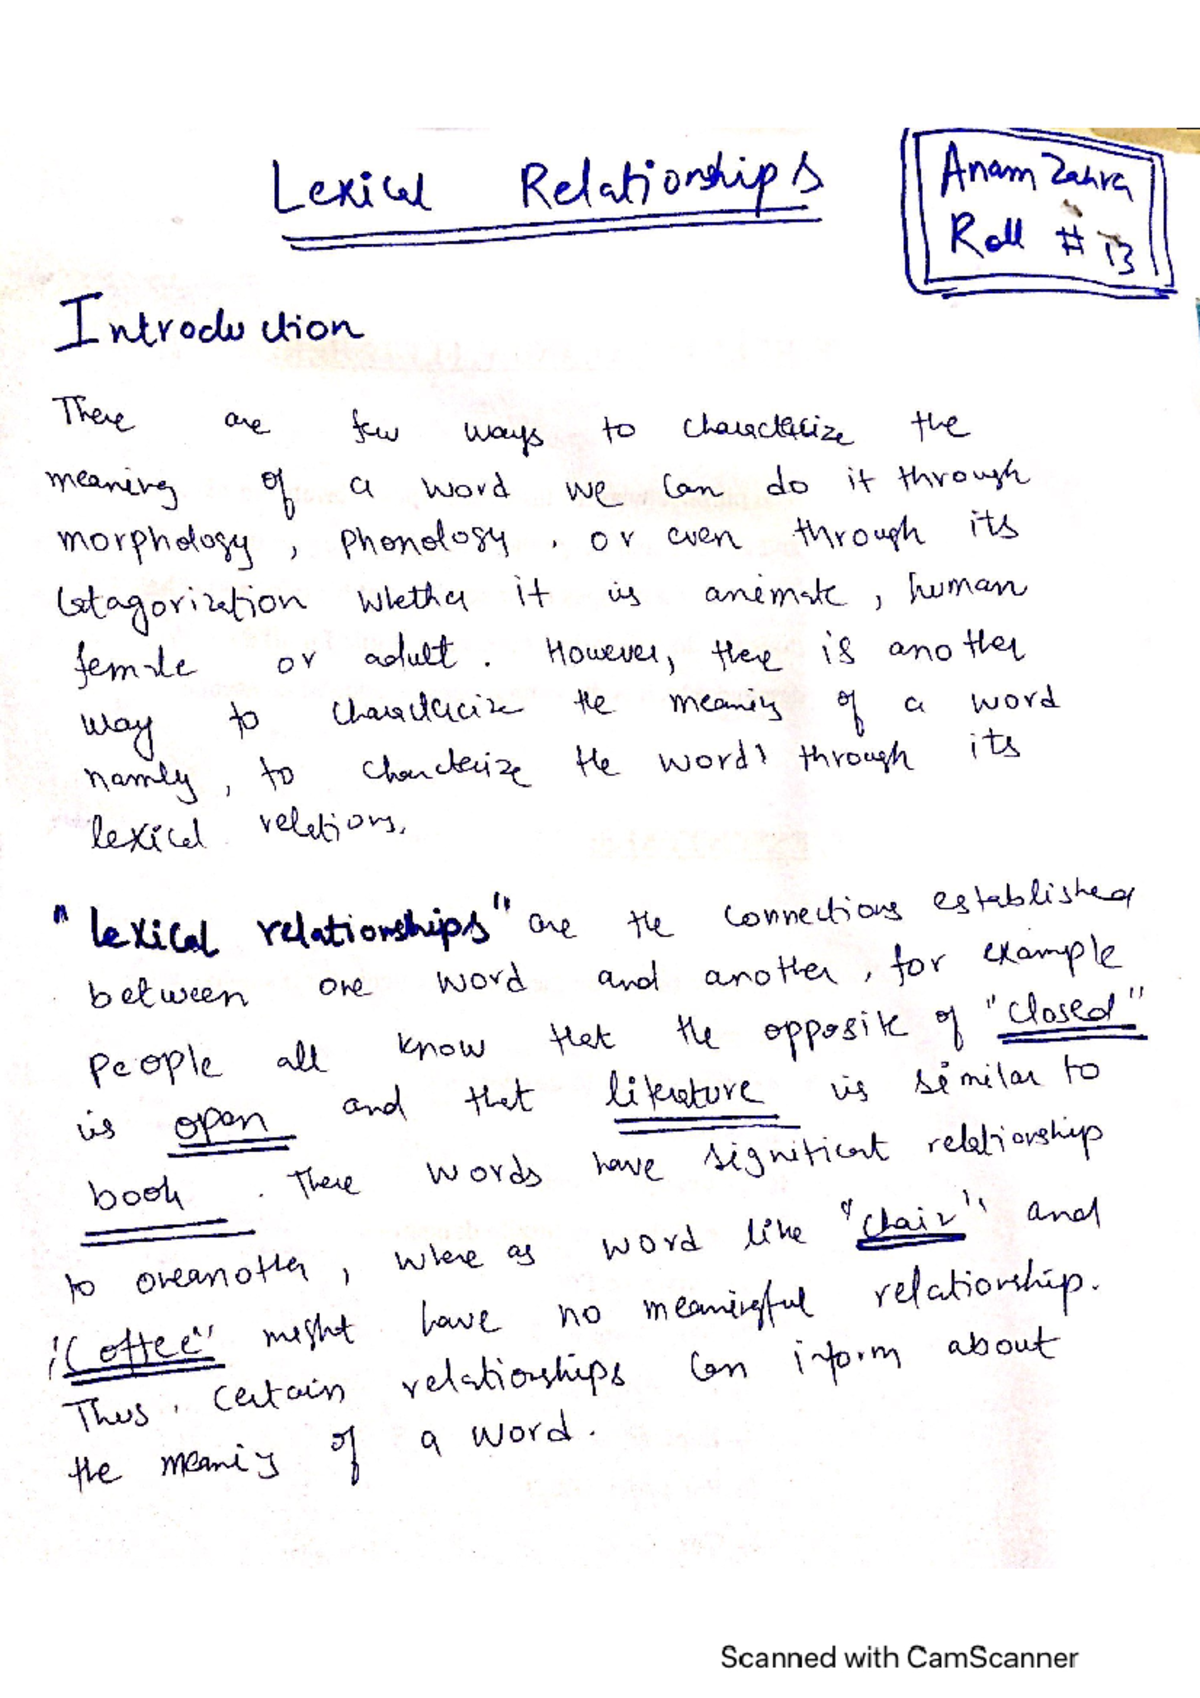 Lexical Relationships
Anam Zahra
Roll # 13
Introduction
There are few ways to characterize the
meaning of a word we can do it through
morphology, phonology, or even through its
catagorization whether it is animate, human
female or adult. However, there is another
way to characterize the meaning of a word
namly, to charcterize the word, through its
lexical relations.
"lexical relationships" are the connections established
between one word and another, for example
people all know that the opposite of "closed"
is open and that literature is similar to
book. There words have significant relationship
to oneanother, where as word like "chair" and
"Coffee" might have no meaningful relationship.
Thus, certain relationships can inform about
the meaning of a word.
Scanned with CamScanner